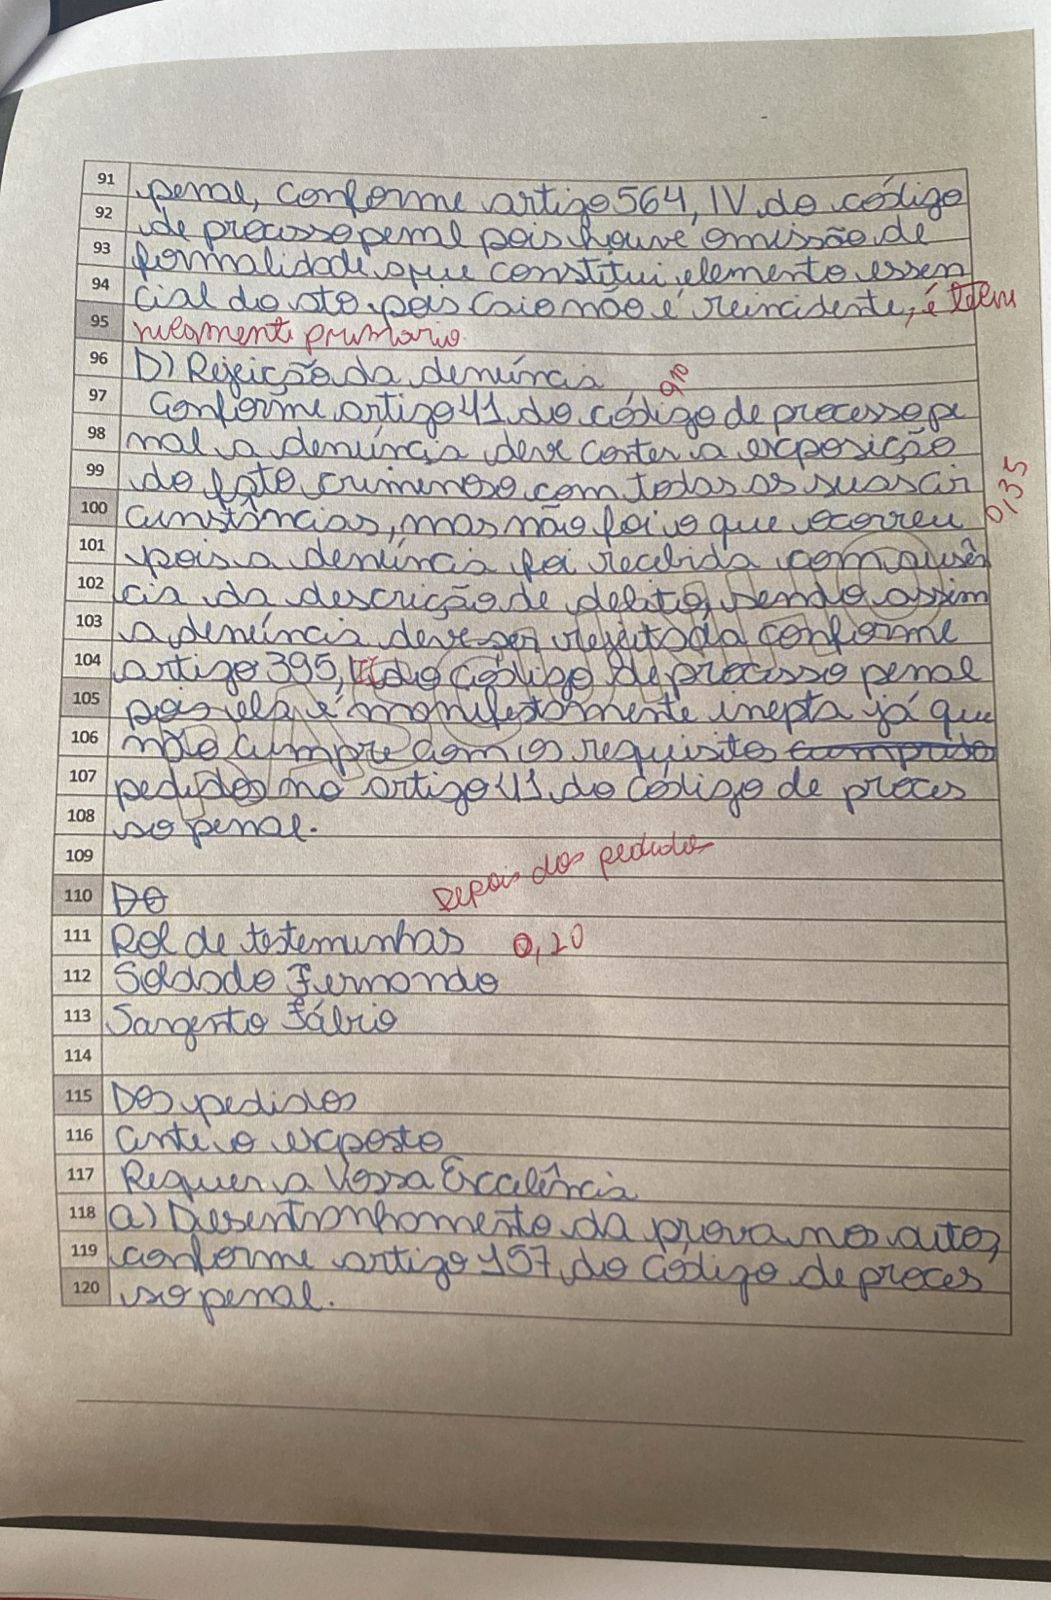 91 penal, conforme artigo 564, IV do código
92 de processo penal pois houve omissão de
93 formalidade que constitui elemento essen
94 cial do ato pois Caio não é reincidente, é
95 primario.
96 D) Rejeição da denúncia
97 Conforme artigo 41 do código de processo pe
98 nal a denúncia deve conter a exposição
99 do fato criminoso com todas as suas cir
100 cunstâncias, mas não foi o que ocorreu
0,35
101 pois a denúncia foi recebida com ausên
102 cia da descrição de delito, sendo assim
103 a denúncia deve ser rejeitada conforme
104 artigo 395, do código de processo penal
105 pois ela é manifestamente inepta já que
106 não cumpre com os requisitos
107 pedidos no artigo 41 do código de proces
108 so penal.
109
Depois dos pedidos
110 DO
111 Rol de testemunhas 0,20
112 Soldado Fernando
113 Sargento Fábio
114
115 Dos pedidos
116 ante o exposto
117 Requer a Vossa Excelência
118 a) Desentranhamento da prova nos autos,
119 conforme artigo 157 do Código de proces
120 so penal.